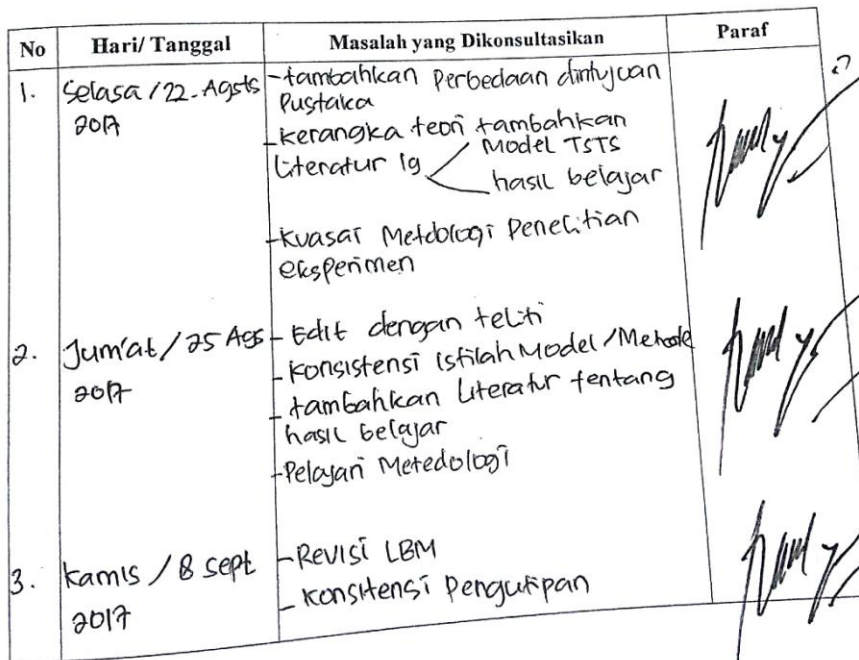 No Hari/ Tanggal Masalah yang Dikonsultasikan Paraf
1. Selasa / 22. Agsts 2017
-tambahkan Perbedaan dintujuan
Pustaka
-kerangka teori tambahkan
Literatur lg Model TSTS
hasil belajar
-Kuasai Metdologi Penelitian
eksperimen
2. Jum'at / 25 Ags 2017
- Edit dengan teliti
- Konsistensi istilah Model/Metode
- tambahkan Literatur tentang
hasil belajar
-Pelajari Metedologi
3. Kamis / 8 Sept 2017
-Revisi LBM
- Konsitensi Pengutipan